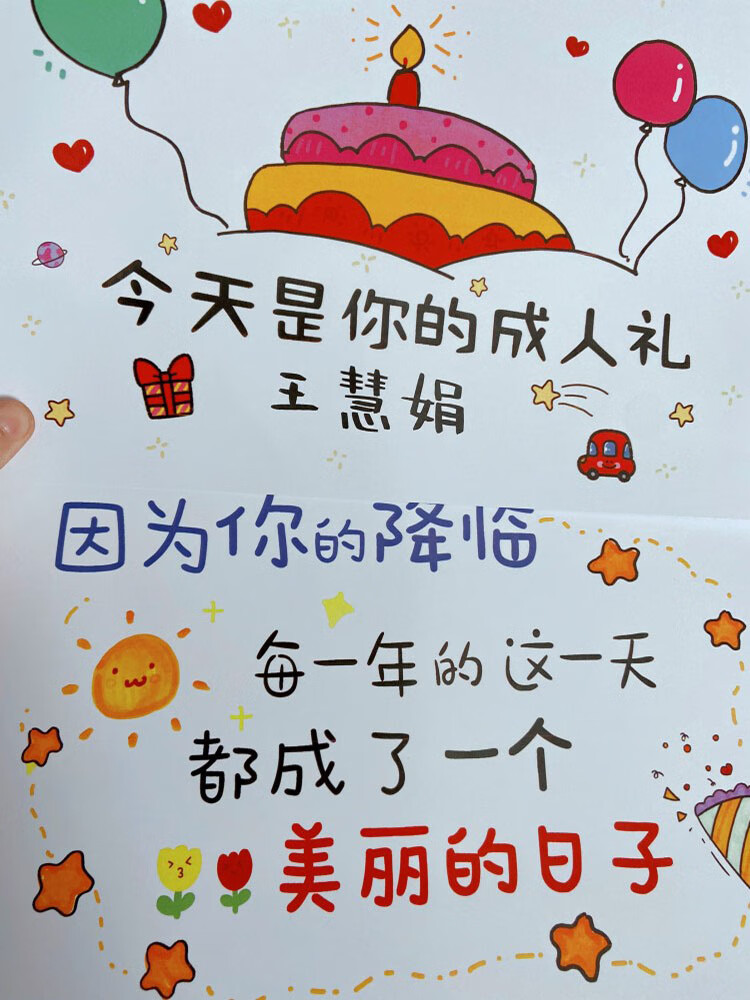 今天是你的成人礼
王慧娟
因为你的降临
每一年的这一天
都成了一个
美丽的日子